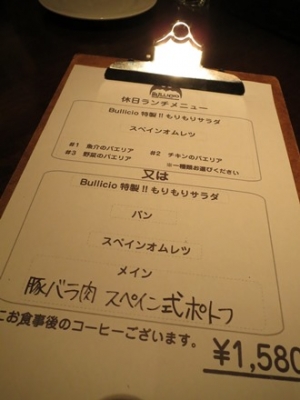 BULLICIO
休日ランチメニュー
Bullicio 特製!!もりもりサラダ
スペインオムレツ
#1 魚介のパエリア #2 チキンのパエリア
#3 野菜のパエリア ※一種類お選びください
又は
Bullicio 特製!!もりもりサラダ
パン
スペインオムレツ
メイン
豚バラ肉 スペイン式ポトフ
にお食事後のコーヒーございます。
¥1,580